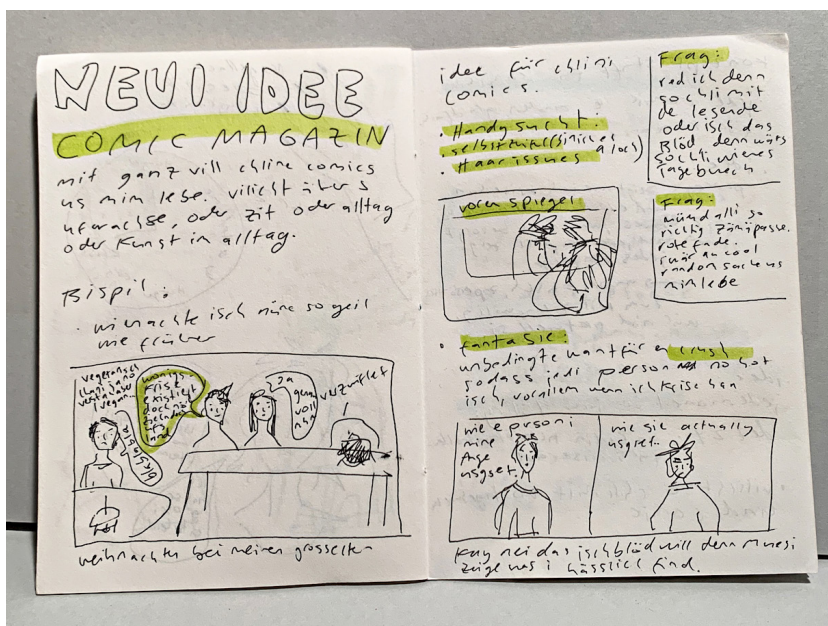 NEUI IDEE
COMIC MAGAZIN
mit ganz vill chline comics
us mim lebe. vilicht übers
ufwachse, oder zit oder alltag
oder Kunst im alltag.
Bispil:
· wienachte isch nüme so geil
wie früher
vegetarisch
vegan...
existiert
doch no
land
ja
voll
verzwiflet
bla bla bla
weihnachten bei meinen grosseltern
idee für chlini
comics.
· Handysucht:
· selbstzwiifel
· Haarissues
vorem spiegel
· fantasie:
unbedingte want für en crush
sodass jedi person no hot
isch, vorallem wenn ich krise han
wie e person i
mine
Auge
usgset..
wie sie actually
usgset..
nei das isch blöd will denn muesi
zeige was i hässlich find.
Frag:
red ich denn
so chli mit
de lesende
oder isch das
Blöd denn wärs
so chli wienes
tagebuech
Frag:
münd alli so
richtig zämepasse.
rote fade.
s wär au cool
random sache us
mim lebe